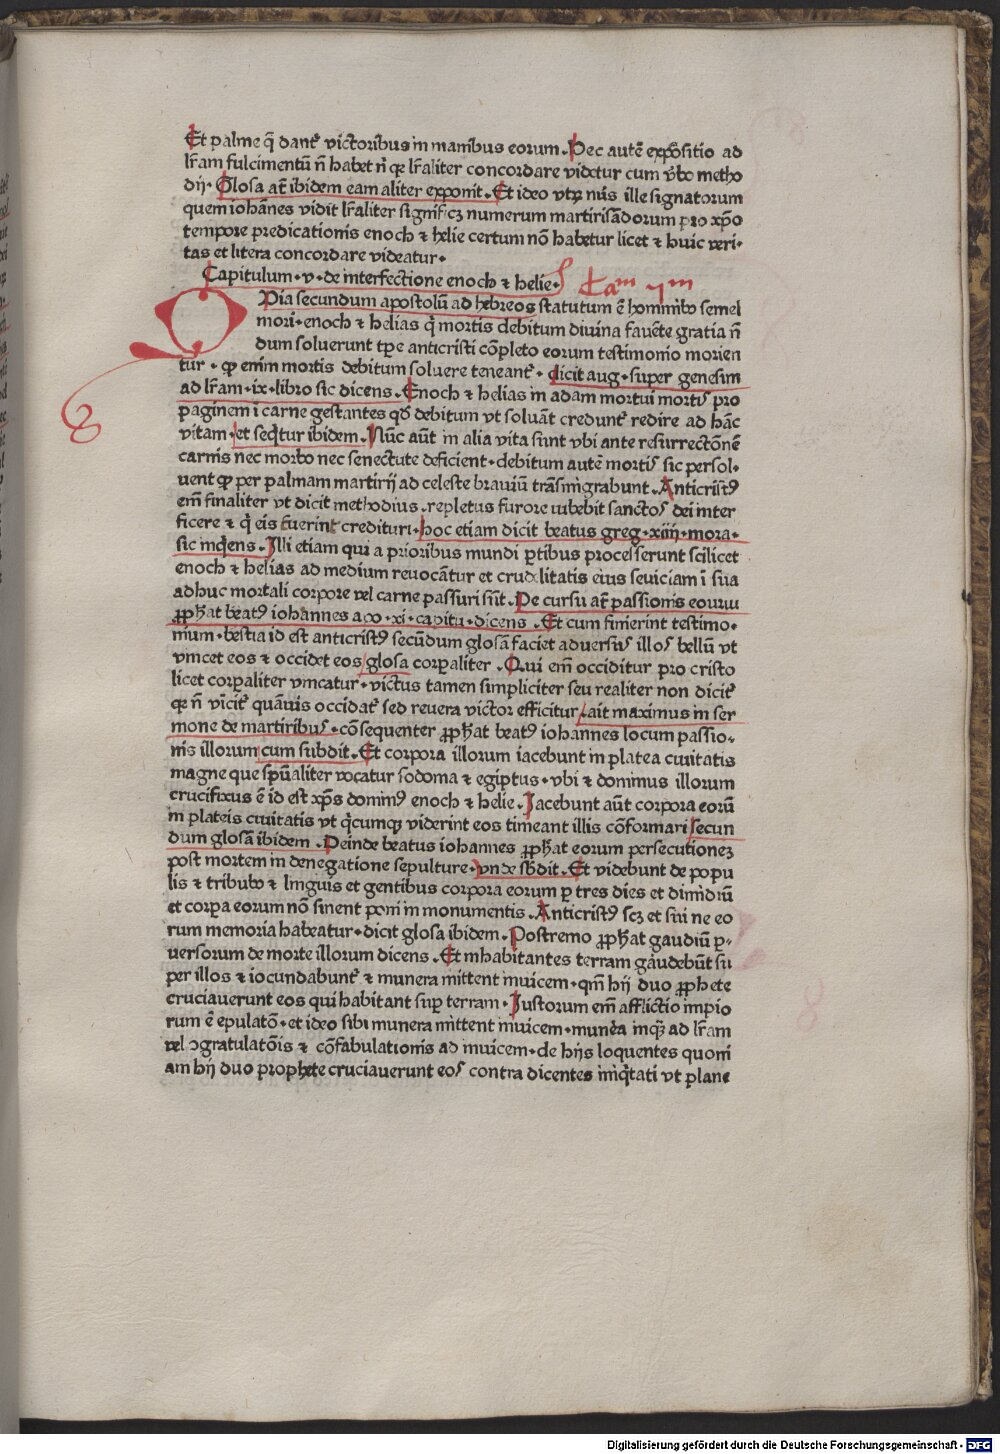 Et palme q̄ dant᷑ victoribus in manibus eorum. Hec autē expositio ad
lr̄am fulcimentū n̄ habet nͥ qꝫ lr̄aliter concordare videtur cum vͨbo metho
dij. Glosa at̄ ibidem eam aliter exponit. Et ideo vtꝝ nūs ille signatorum
quem iohānes vidit lr̄aliter significꝫ numerum martirisādorum pro xp̄o
tempore predicationis enoch ⁊ helie certum nō habetur licet ⁊ huic veri-
tas et litera concordare videatur.
Capitulum. v. de interfectione enoch ⁊ helie.
Qia secundum apostolū ad hebreos statutum ē hominibꝰ semel
mori. enoch ⁊ helias qͥ mortis debitum diuina fauēte gratia n̄
dum soluerunt tꝑe anticristi cōpleto eorum testimonio morien
tur. qꝫ enim mortis debitum soluere teneant᷑. dicit aug. super genesim
ad lr̄am. ix. libro sic dicens. Enoch ⁊ helias in adam mortui mortis pro
paginem ī carne gestantes qd̄ debitum vt soluāt credunt᷑ redire ad hāc
vitam. et seqͥtur ibidem. Nūc aūt in alia vita sunt vbi ante resurrectōnē
carnis nec morbo nec senectute deficient. debitum autē mortis sic persol.
uent qꝫ per palmam martirij ad celeste brauiū trāsmigrabunt. Anticristꝰ
em̄ finaliter vt dicit methodius. repletus furore iubebit sanctos dei inter
ficere ⁊ qͥ eis fuerint credituri. hoc etiam dicit beatus greg. xiiij. mora.
sic inqͥens. Illi etiam qui a prioribus mundi ꝑtibus processerunt scilicet
enoch ⁊ helias ad medium reuocātur et crudelitatis eius seuiciam ī sua
adhuc mortali corpore vel carne passuri sūt. De cursu at̄ passionis eorum
ꝓph̄at beatꝰ iohannes apo. xi. capitu. dicens. Et cum finierint testimo.
nium. bestia id est anticristꝰ secūdum glosā faciet aduersus illos bellū vt
vincet eos ⁊ occidet eos glosa corꝑaliter. Qui em̄ occiditur pro cristo
licet corꝑaliter vincatur. victus tamen simpliciter seu realiter non dicit᷑
qꝫ n̄ vīcit᷑ quāuis occidat᷑ sed reuera victor efficitur. ait maximus in ser
mone de martiribus. cōsequenter ꝓph̄at beatꝰ iohannes locum passio.
nis illorum cum subdit. Et corpora illorum iacebunt in platea ciuitatis
magne que spūaliter vocatur sodoma ⁊ egiptus. vbi ⁊ dominus illorum
crucifixus ē id est xp̄s dominꝰ enoch ⁊ helie. Iacebunt aūt corpora eorū
in plateis ciuitatis vt qͥcumqꝫ viderint eos timeant illis cōformari secun
dum glosā ibidem. Deinde beatus iohannes ꝓph̄at eorum persecutioneꝫ
post mortem in denegatione sepulture. vnde sb̄dit. Et videbunt de popu
lis ⁊ tribubꝰ ⁊ linguis et gentibus corpora eorum ꝑ tres dies et dimidiū
et corꝑa eorum nō sinent poni in monumentis. Anticristꝰ scꝫ et sui ne eo
rum memoria habeatur. dicit glosa ibidem. Postremo ꝓph̄at gaudiū ꝑ-
uersorum de morte illorum dicens. Et inhabitantes terram gaudebūt su
per illos ⁊ iocundabunt᷑ ⁊ munera mittent inuicem. qm̄ hij duo ꝓphete
cruciauerunt eos qui habitant suꝑ terram. Iustorum em̄ afflictio impio
rum ē epulatō. et ideo sibi munera mittent inuicem. munēa inqͣꝫ ad lr̄am
vel ꝯgratulatōis ⁊ cōfabulationis ad inuicem. de hijs loquentes quoni
am hij duo prophete cruciauerunt eos contra dicentes iniqͥtati vt plane
Digitalisierung gefördert durch die Deutsche Forschungsgemeinschaft - DFG